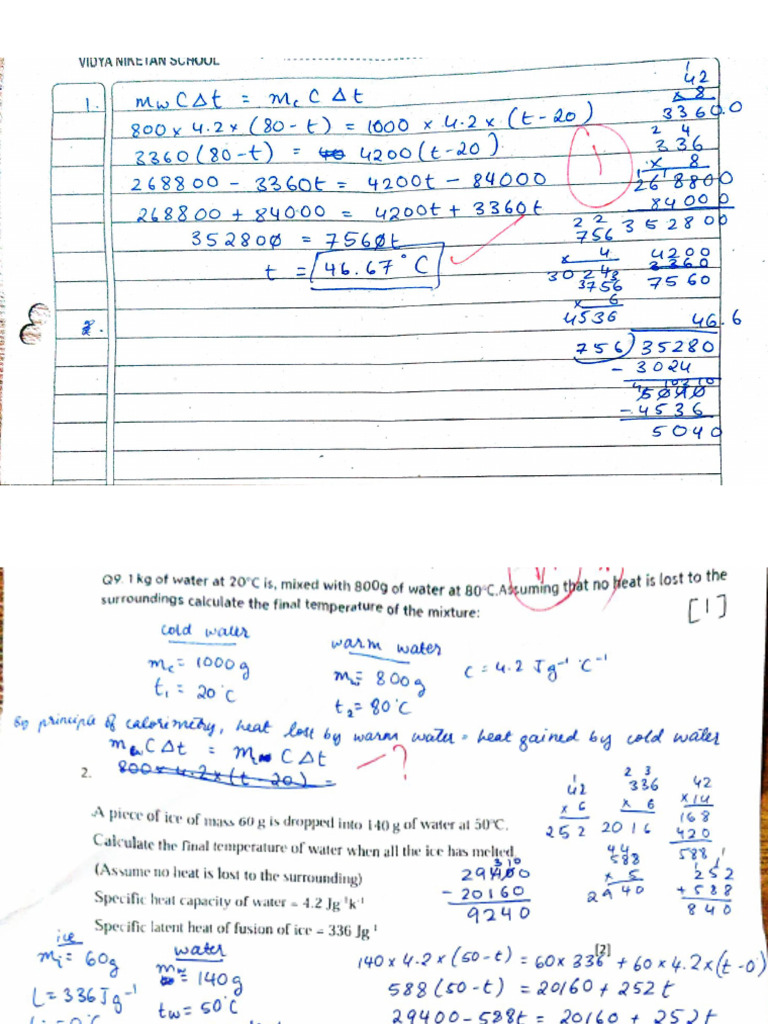 VIDYA NIKETAN SCHOOL
1.
m_w C Δt = m_c C Δt
800 x 4.2 x (80 - t) = 1000 x 4.2 x (t - 20)
3360 (80 - t) = 4200 (t - 20)
268800 - 3360t = 4200t - 84000
268800 + 84000 = 4200t + 3360t
352800 = 7560t
t = 46.67°C
1
42
x 8
3360.0
2 4
336
x 8
268800
84000
352800
2 2
756
x 4
3024
4200
3360
7560
3
756
x 6
4536
46.6
756)35280
- 3024
5040
- 4536
5040
2.
Q9. 1 kg of water at 20°C is, mixed with 800g of water at 80°C. Assuming that no heat is lost to the
surroundings calculate the final temperature of the mixture:
[1]
cold water
m_c = 1000g
t₁ = 20°C
warm water
m = 800g
t₂ = 80°C
C = 4.2 Jg⁻¹ °C⁻¹
By principle of calorimetry, heat lost by warm water = heat gained by cold water
m C Δt = m C Δt
?
2.
800 x 4.2 x (t - 20) =
A piece of ice of mass 60 g is dropped into 140 g of water at 50°C.
Calculate the final temperature of water when all the ice has melted
(Assume no heat is lost to the surrounding)
Specific heat capacity of water = 4.2 Jg⁻¹k⁻¹
Specific latent heat of fusion of ice = 336 Jg⁻¹
[2]
1
42
x 6
252
2 3
336
x 6
2016
42
x 14
168
420
588
4 4
588
x 5
2940
252
+ 588
840
29400
- 20160
9240
ice
mᵢ = 60g
L = 336 Jg⁻¹
water
m = 140g
t_w = 50°C
140 x 4.2 x (50 - t) = 60 x 336 + 60 x 4.2 x (t - 0)
588 (50 - t) = 20160 + 252t
29400 - 588t = 20160 + 252t